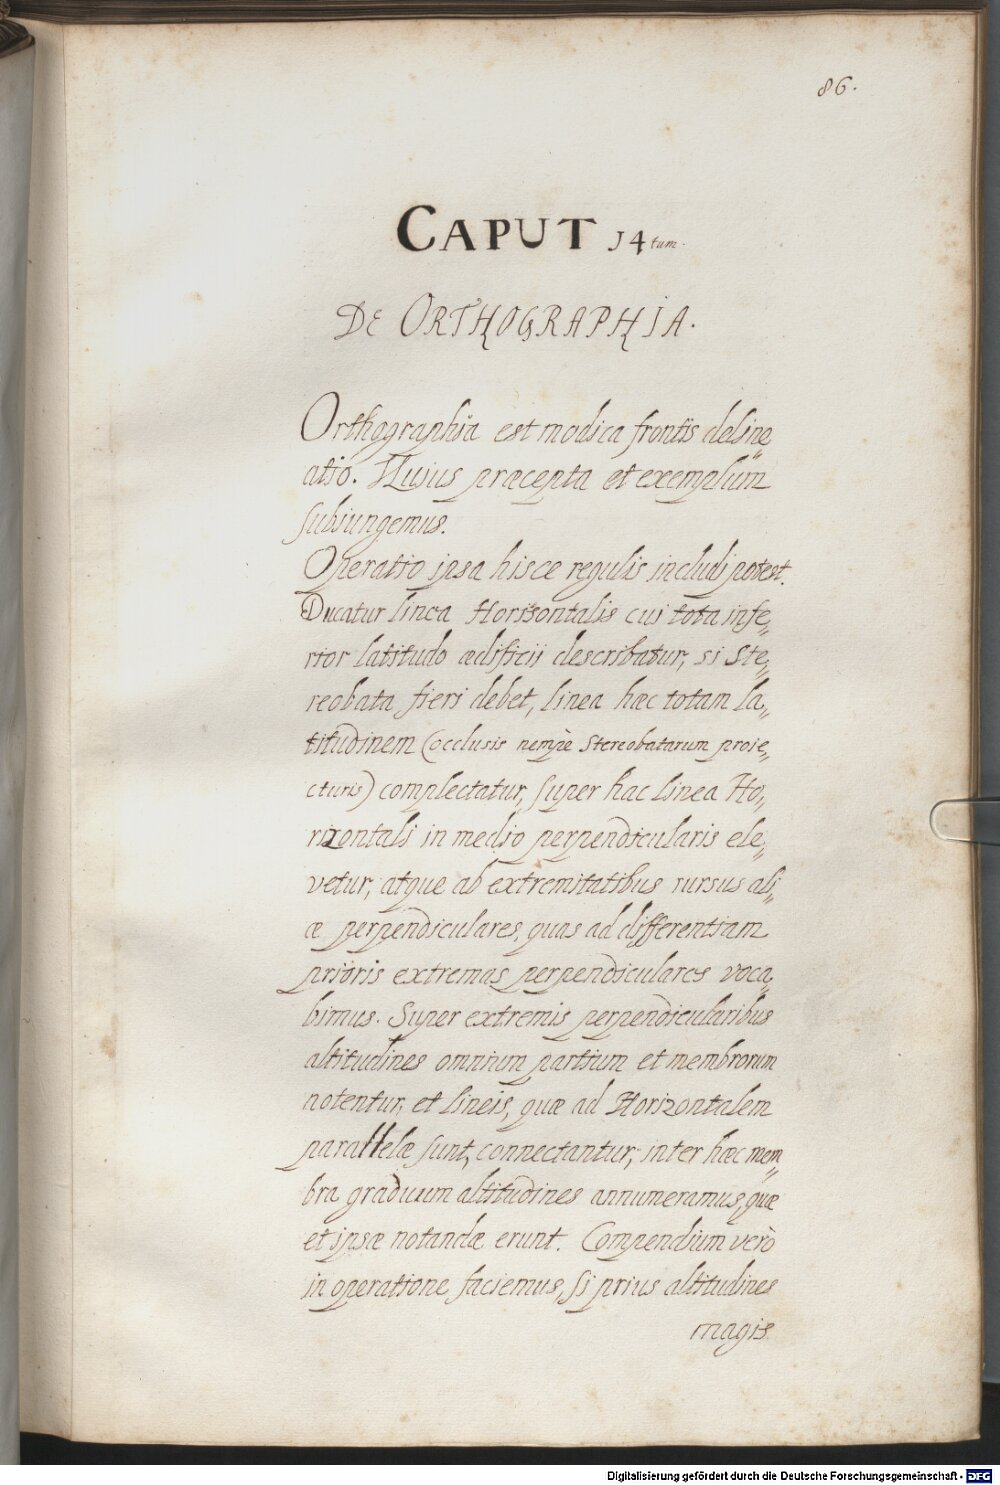 86.
CAPUT 14tum.
DE ORTHOGRAPHIA.
Orthographia est modica frontis deline„
atio. Huius præcepta et exemplum
subiungemus.
Operatio ipsa hisce regulis includi potest.
Ducatur linea Horisontalis cui tota infe„
rior latitudo ædificij describatur, si Ste„
reobata fieri debet, linea hæc totam la„
titudinem (occlusis nempè Stereobatarum proie„
cturis) complectatur, super hac linea Ho„
rizontali in medio perpendicularis ele„
vetur, atque ab extremitatibus rursus ali„
æ perpendiculares, quas ad differentiam
prioris extremas perpendiculares voca„
bimus. Super extremis perpendicularibus
altitudines omnium partium et membrorum
notentur, et lineis, quæ ad Horizontalem
parallelæ sunt, connectantur, inter hæc mem„
bra graduum altitudines annumeramus, quæ
et ipsæ notandæ erunt. Compendium verò
in operatione faciemus, si prius altitudines
magis
Digitalisierung gefördert durch die Deutsche Forschungsgemeinschaft - DFG